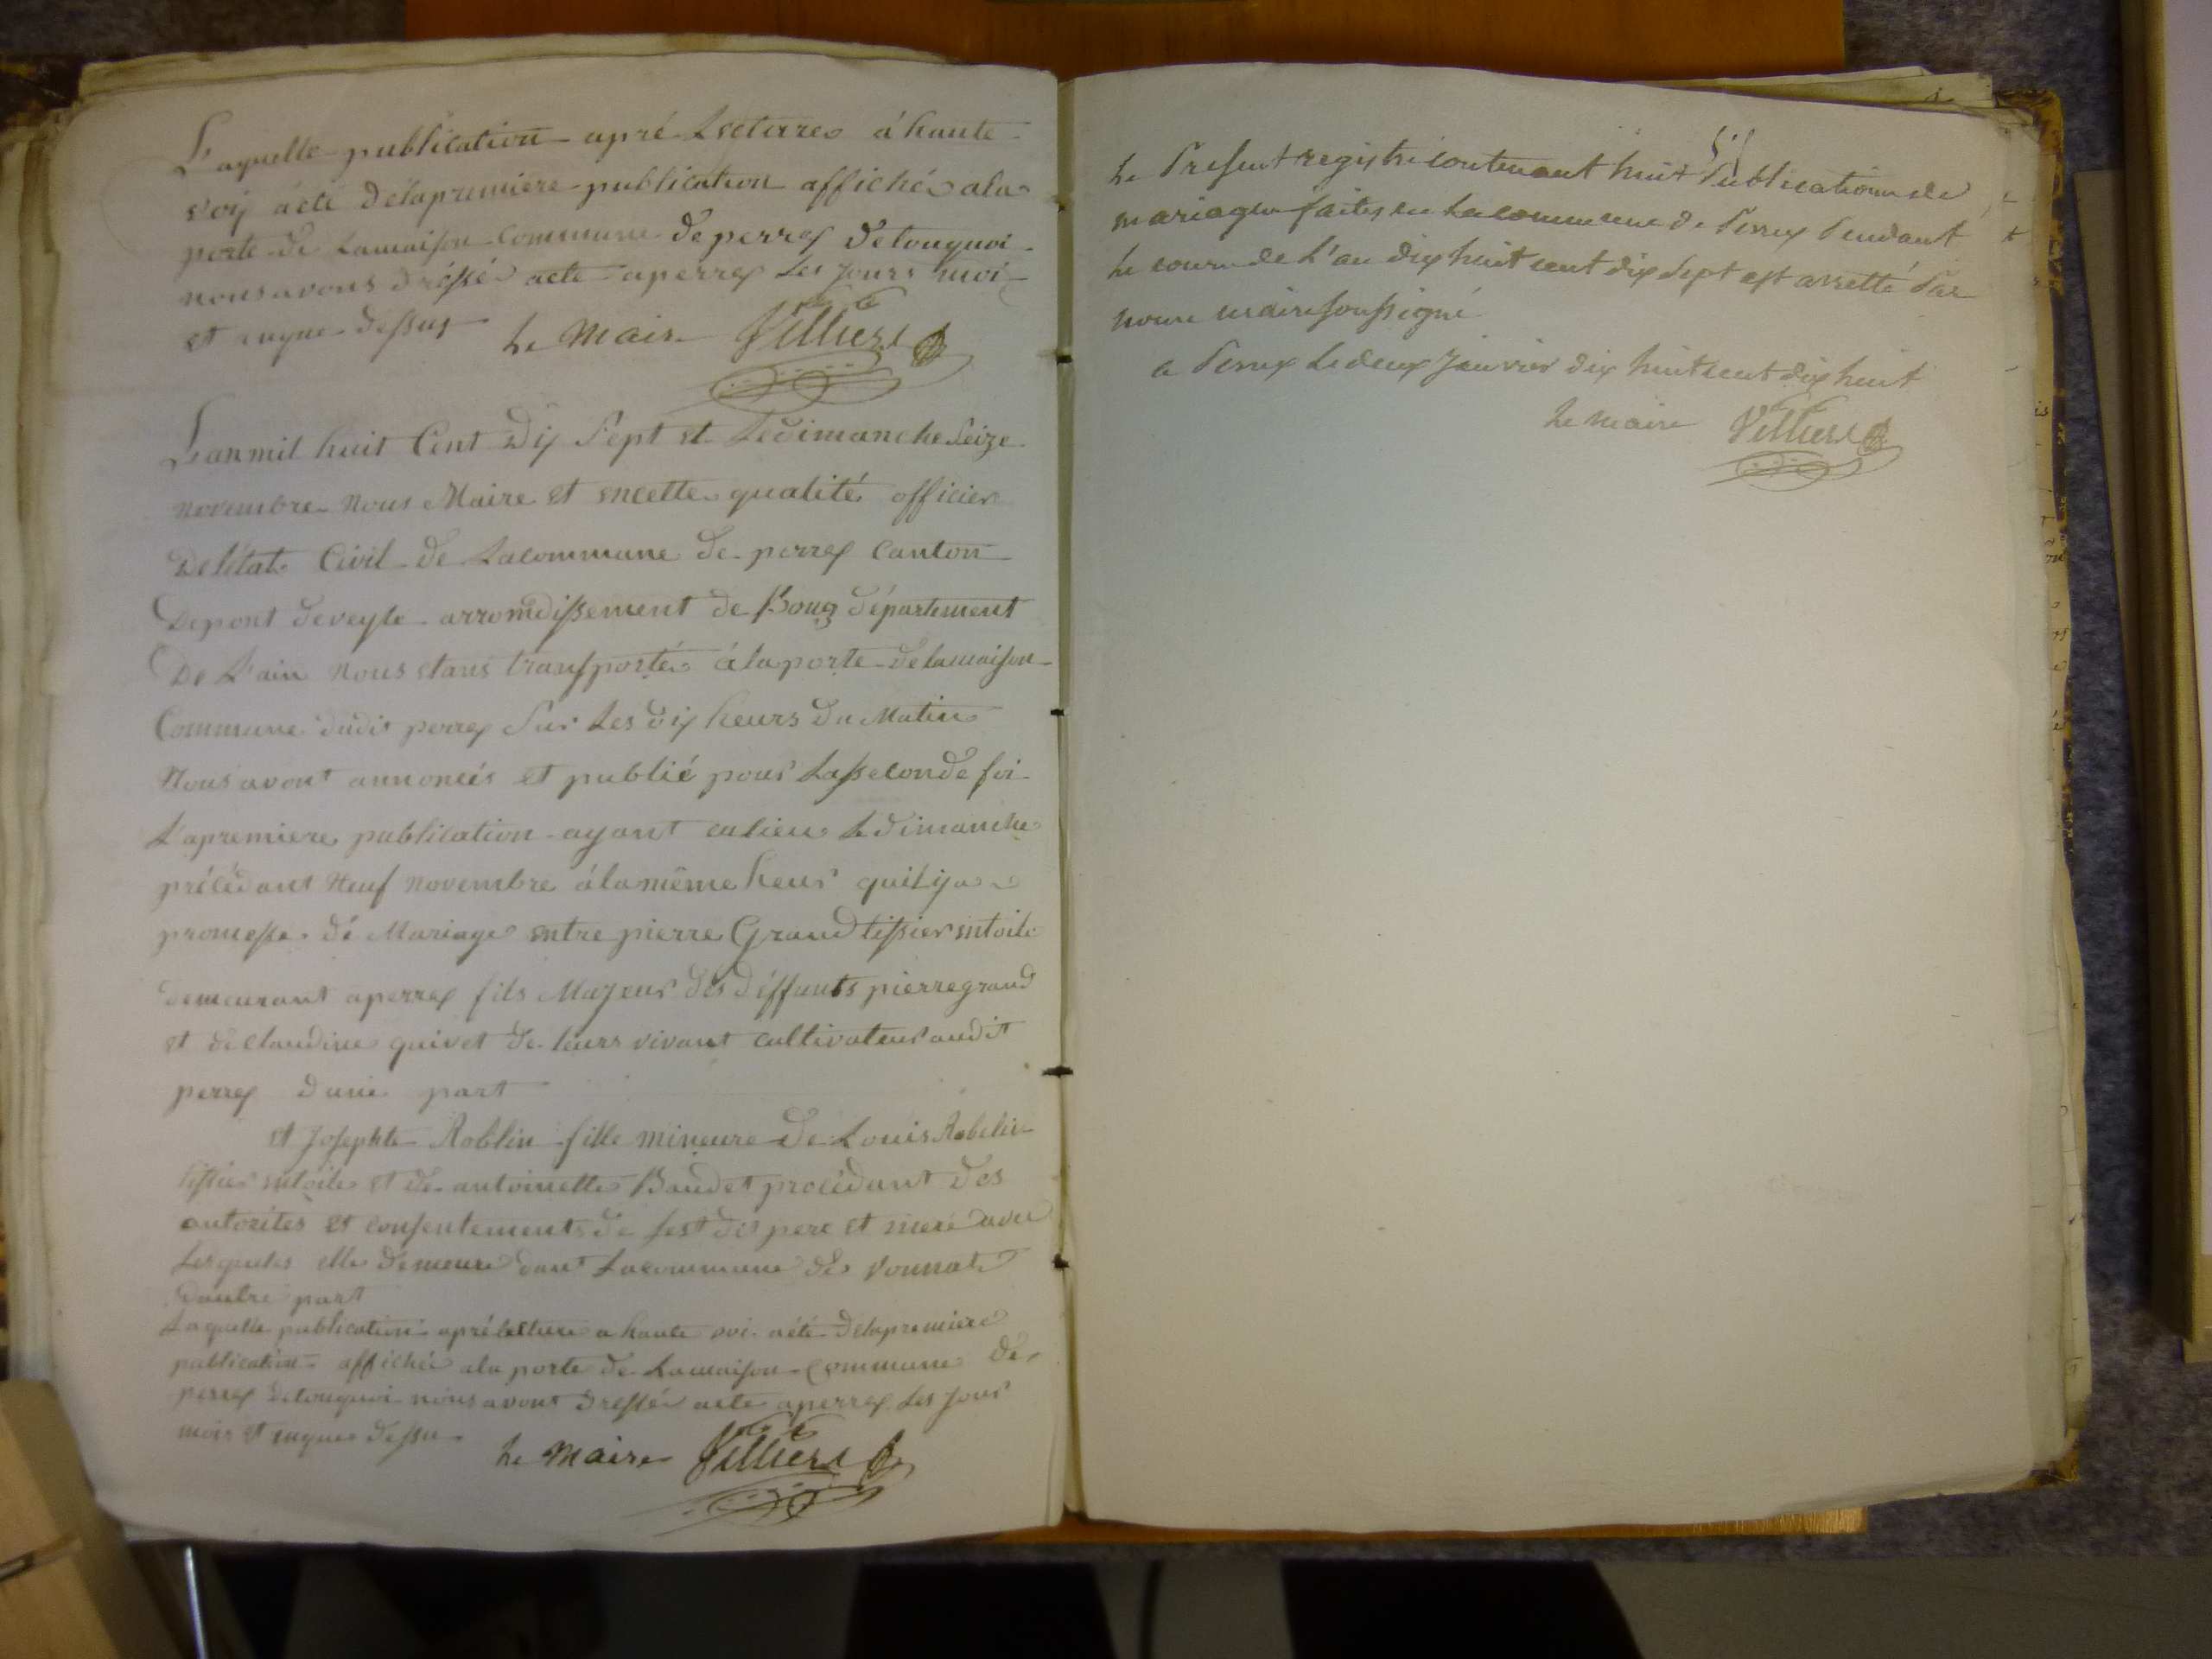 Laquelle publication apré Lecturre à haute
voij àété délapremiere publication affichée ala
porte de Lamaison Commune de perrex détouquoi
nous avons dréssé acte aperrex Les jours moi
et anque dessus Le Maire Villiers
L'an mil huit Cent Dix Sept et Le dimanche Seize
novembre Nous Maire et encette qualité officier
Delétat Civil de Lacommune de perrex Canton
Depont deveyle arromdissement de Boug département
De L'ain Nous etans transportés àlaporte delamaison
Commune dudit perrex Sur Les dix heurs du Matin
Nous avont annoncés et publié pour Lasseconde foi
Lapremiere publication ayant eulieu Ledimanche
précédant Neuf novembre àlamême heur quilija
promesse de Mariage entre pierre Grand tissier entoile
demeurant aperrex fils Majeur dés déffunts pierre grand
et de claudine quivet de leurs vivant cultivateur audit
perrex dune part
et Josephte Roblin fille mineure de Louis Robelin
tissier entoile et de antoinette Baudet procédant des
autorites et consentements de sest dis pere et mere avec
Lesqueles elle demeure dant Lacommune de Vonnat
dautre part
Laquelle publication apré lecture a haute voi aété délapremiere
publication affichée ala porte de Lamaison Commune de
perrex détouquoi nous avont dressée acte aperrex Les jour
mois et anque dessu
Le Maire Villiers
Le Present registre contenant huit Publications de
mariages faites en La commune de Perrex Pendant
Le cours de L'an dix huit cent dix Sept est arretté Par
nous maire soussigné
a Perrex Le deux janvier dix huit cent dix huit
Le maire Villiers